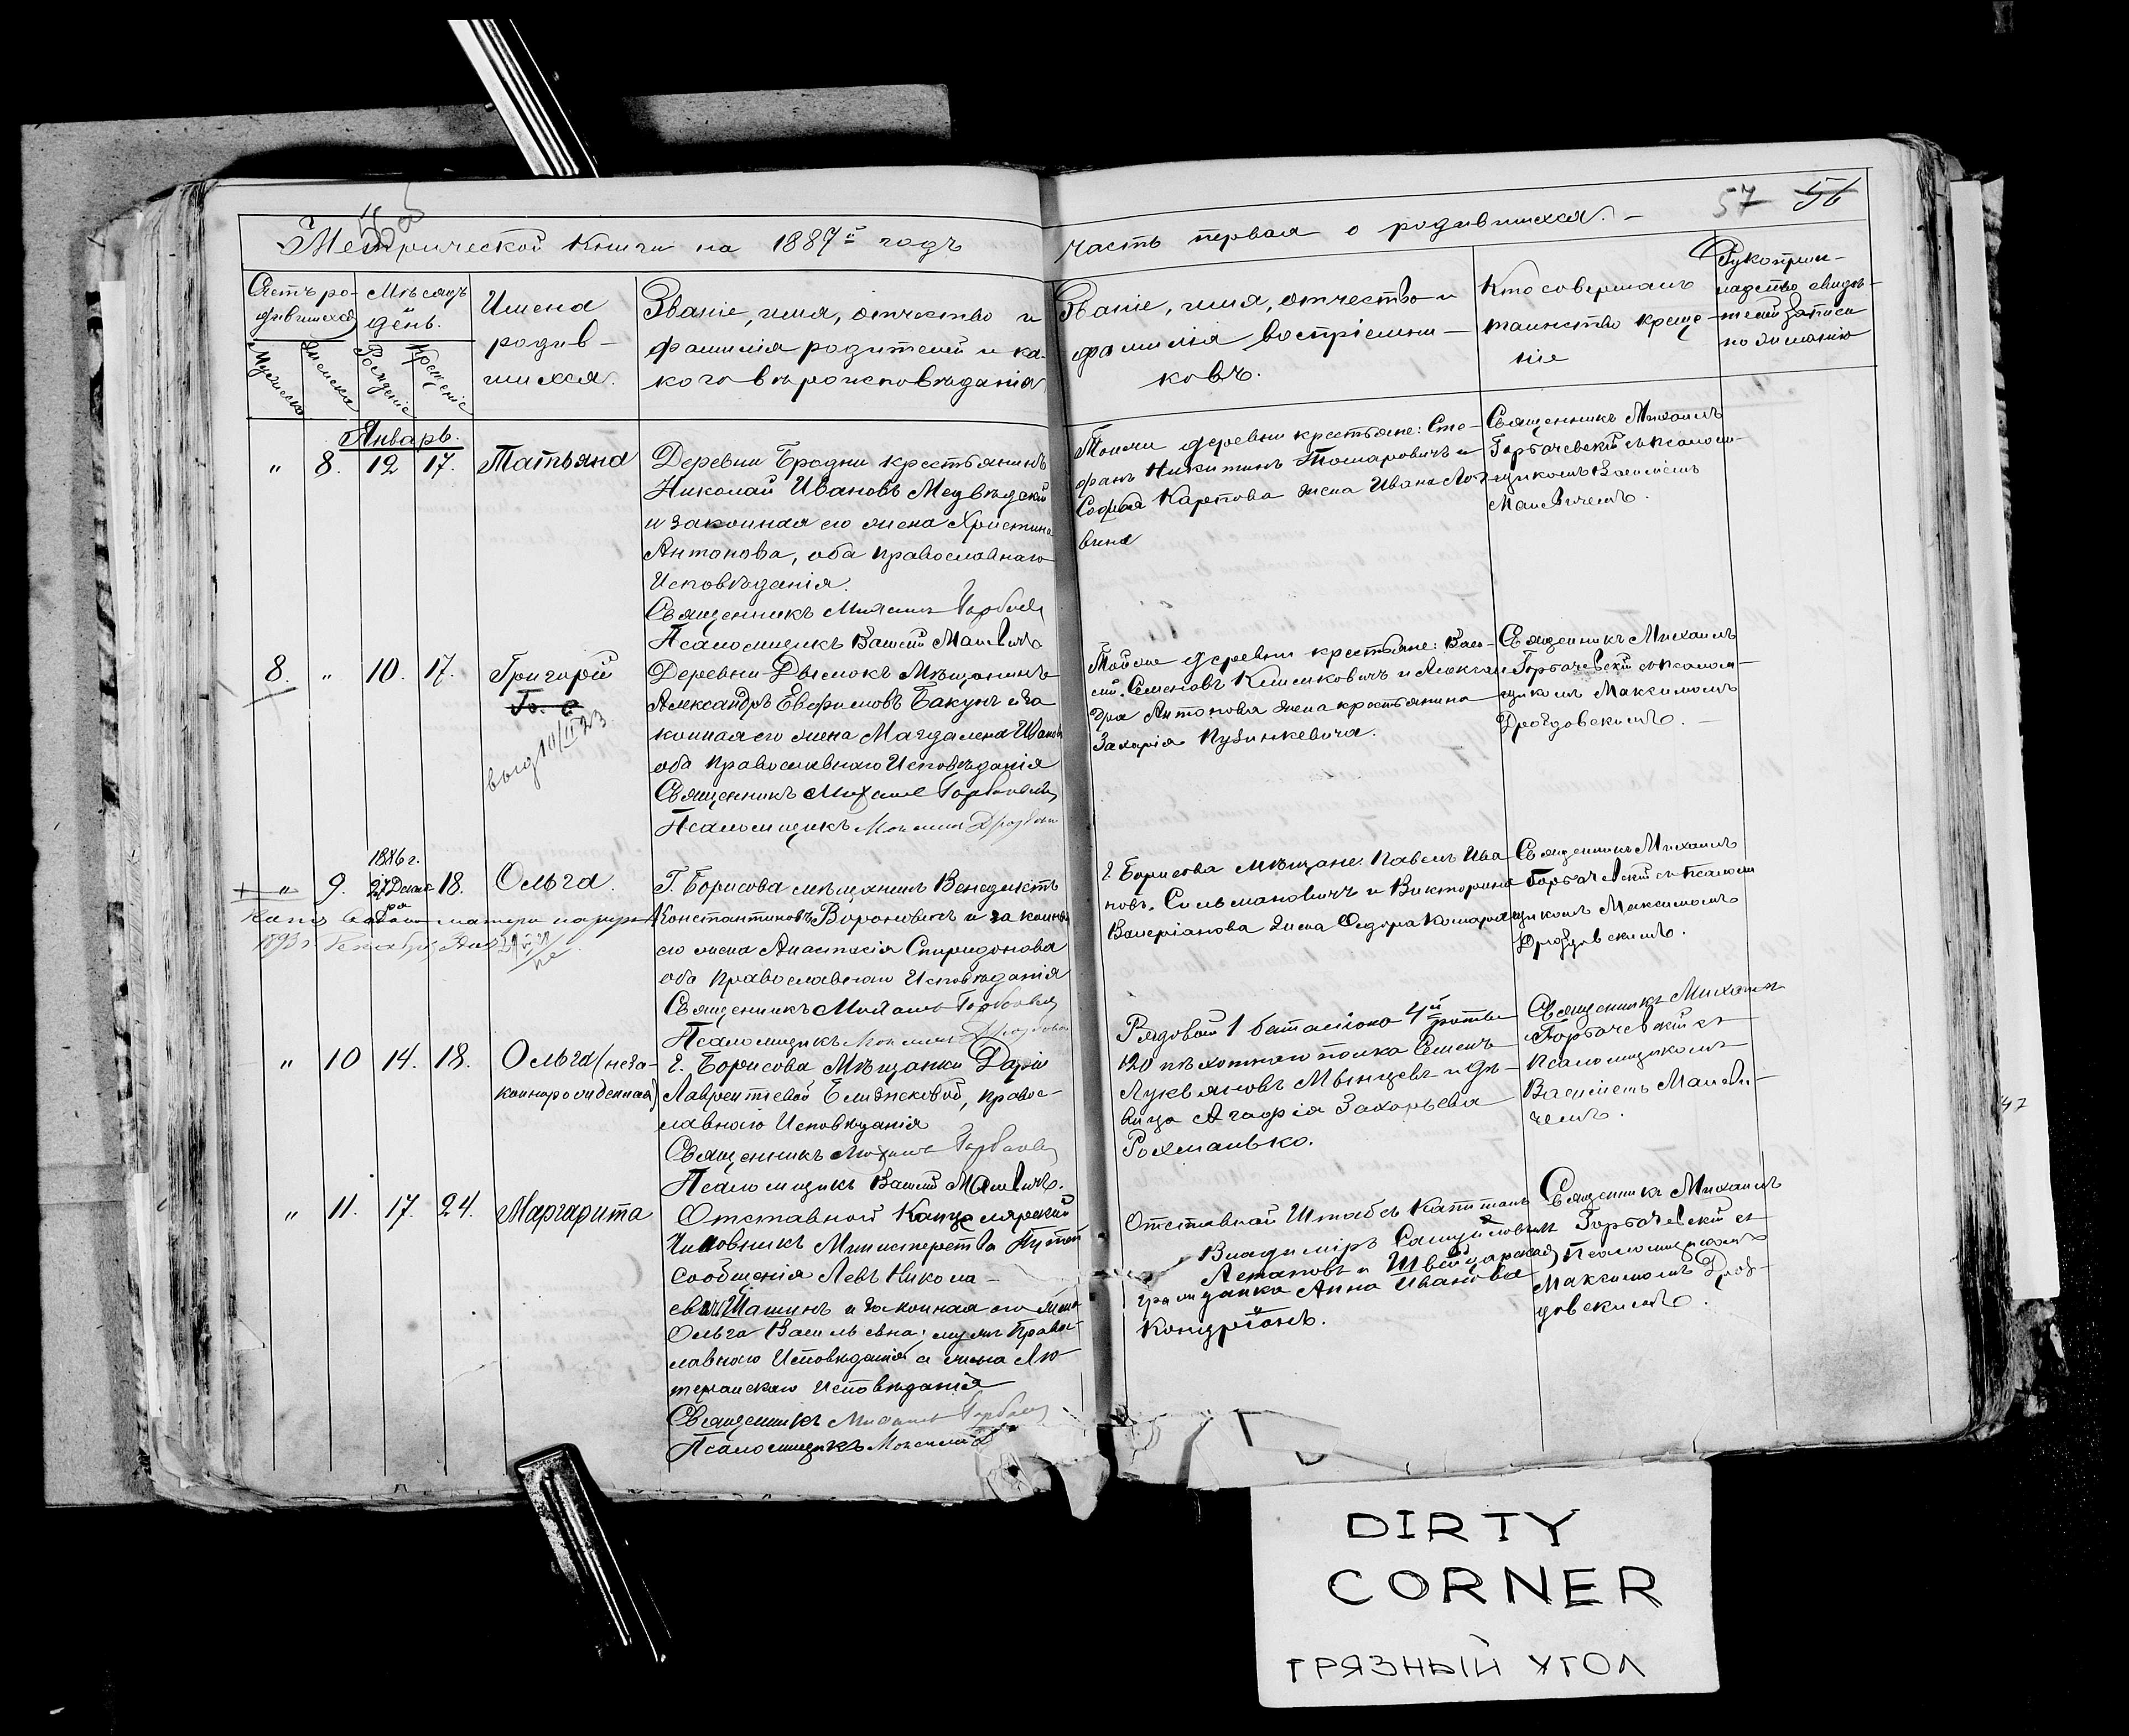 57 56
Метрической книги на 1887й годъ часть первая о родившихся.
Счетъ ро-
дившихся
Мѣсяцъ
день.
Мужеска
Женска
Рожденіе
Крещеніе
Имена
родив-
шихся.
Званіе, имя, отчество и
фамилія родителей и ка-
кого вѣроисповѣданія
Званіе, имя, отчество и
фамилія воспріемни-
ковъ.
Кто совершалъ
таинство креще-
нія
Рукоприк-
ладство свидѣ-
телей записи
по желанію
Январь.
„ 8. 12 17. Татьяна
Деревни Бродни крестьянинъ
Николай Ивановъ Медвѣдскій
и законная его жена Христина
Антонова, оба православнаго
Исповѣданія.
Священникъ Михаилъ
Псаломщикъ Василій
Тойже деревни крестьяне: Сте-
фанъ Никитинъ Комаровичъ и
Софья Карпова жена Ивана
вина
Священникъ Михаилъ
Горбачевскій съ псалом-
щикомъ Василіемъ
8. „ 10. 17. Григорій
выд 10/II 23
Деревни Дымокъ Мѣщанинъ
Александръ Евфимовъ Бакунъ и за
конная его жена Магдалена
оба Православнаго Исповѣданія
Священникъ Михаилъ
Псаломщикъ
Тойже деревни крестьяне: Васи-
лій Семеновъ Климковичъ и Алексан
дра Антонова жена крестьянина
Захарія
Священникъ Михаилъ
Горбачевскій съ псалом-
щикомъ Максимомъ
Дроздовскимъ.
1886 г.
„ 9. 27 Декаб
ря 18. Ольга.
1893 г.
Г. Борисова мѣщанинъ Венедиктъ
Константиновъ Вороновичъ и законная
его жена Анастасія Спиридонова
оба Православнаго Исповѣданія
Священникъ Михаилъ
Псаломщикъ
г. Борисова мѣщане: Павелъ Ива
новъ Сильмановичъ и Викторина
Валеріанова жена Ѳедора
Священникъ Михаилъ
Горбачевскій съ Псалом
щикомъ Максимомъ
Дроздовскимъ.
„ 10 14. 18. Ольга (неза-
коннорожденная)
г. Борисова Мѣщанки Дарія
Лаврентіевой, правос-
лавнаго Исповѣданія
Священникъ Михаилъ
Псаломщикъ Василій
Рядовой 1 баталіона 4й роты
120 пѣхотнаго полка Семенъ
Лукьяновъ и дѣ-
вица Агафія Захарьева
Рохманько.
Священникъ Михаилъ
Горбачевскій съ
псаломщикомъ
Василіемъ
„ 11. 17. 24. Маргарита
Отставной Канцелярскій
Чиновникъ Министерства Путей
Сообщенія Левъ Никола-
евичъ Шашинъ и законная его жена
Ольга Васильевна; мужъ Право-
славнаго Исповѣданія а жена Лю-
теранскаго Исповѣданія
Священникъ Михаилъ
Псаломщикъ Максимъ
Отставной Штабсъ Капитанъ
Владиміръ Самуйловичъ
Астаповъ и Швейцарская
гражданка Анна Иванова
Кондріанъ.
Священникъ Михаилъ
Горбачевскій съ
Псаломщикомъ
Максимомъ Дроз-
довскимъ.
47
DIRTY
CORNER
ГРЯЗНЫЙ УГОЛ